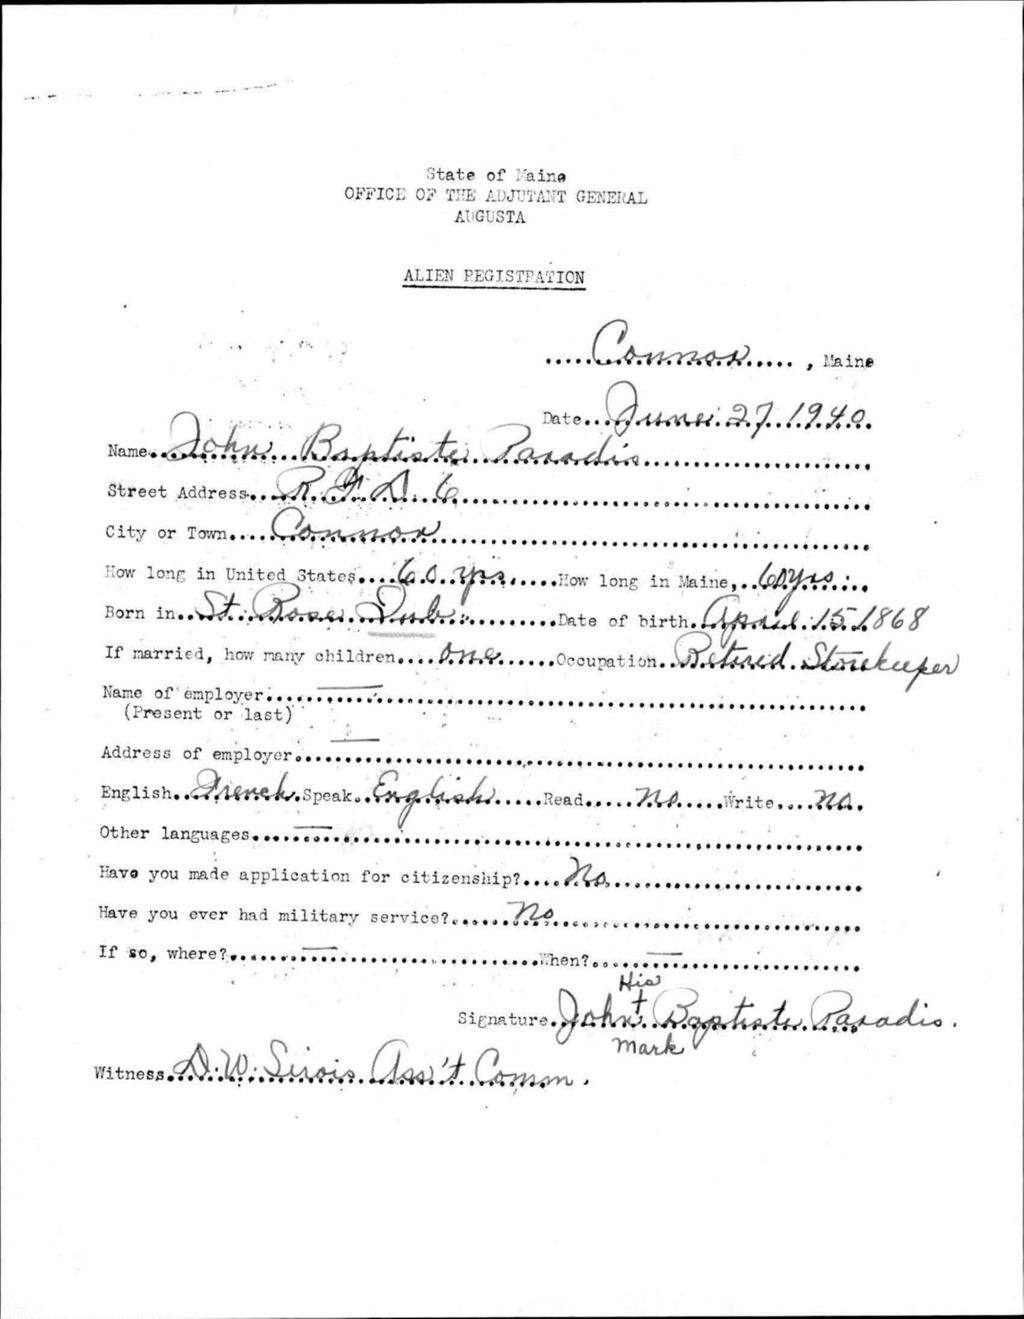 State of Maine
OFFICE OF THE ADJUTANT GENERAL
AUGUSTA
ALIEN REGISTRATION
Connor, Maine
Date June 27, 1940.
Name John Baptiste Paradis
Street Address R. F. D. 6
City or Town Connor
How long in United States 60 yrs. How long in Maine, 60 yrs.
Born in St. Rose Dub. Date of birth April 15, 1868
If married, how many children one Occupation Retired Storekeeper
Name of employer —
(Present or last)
Address of employer —
English French Speak English Read no Write no.
Other languages —
Have you made application for citizenship? No
Have you ever had military service? No
If so, where? — When? —
His
Signature John + Baptiste Paradis.
Mark
Witness D. W. Sirois Ass't Comm.